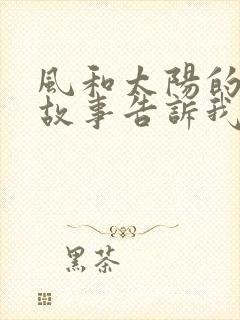 風和太陽的
故事告訴我
黑茶